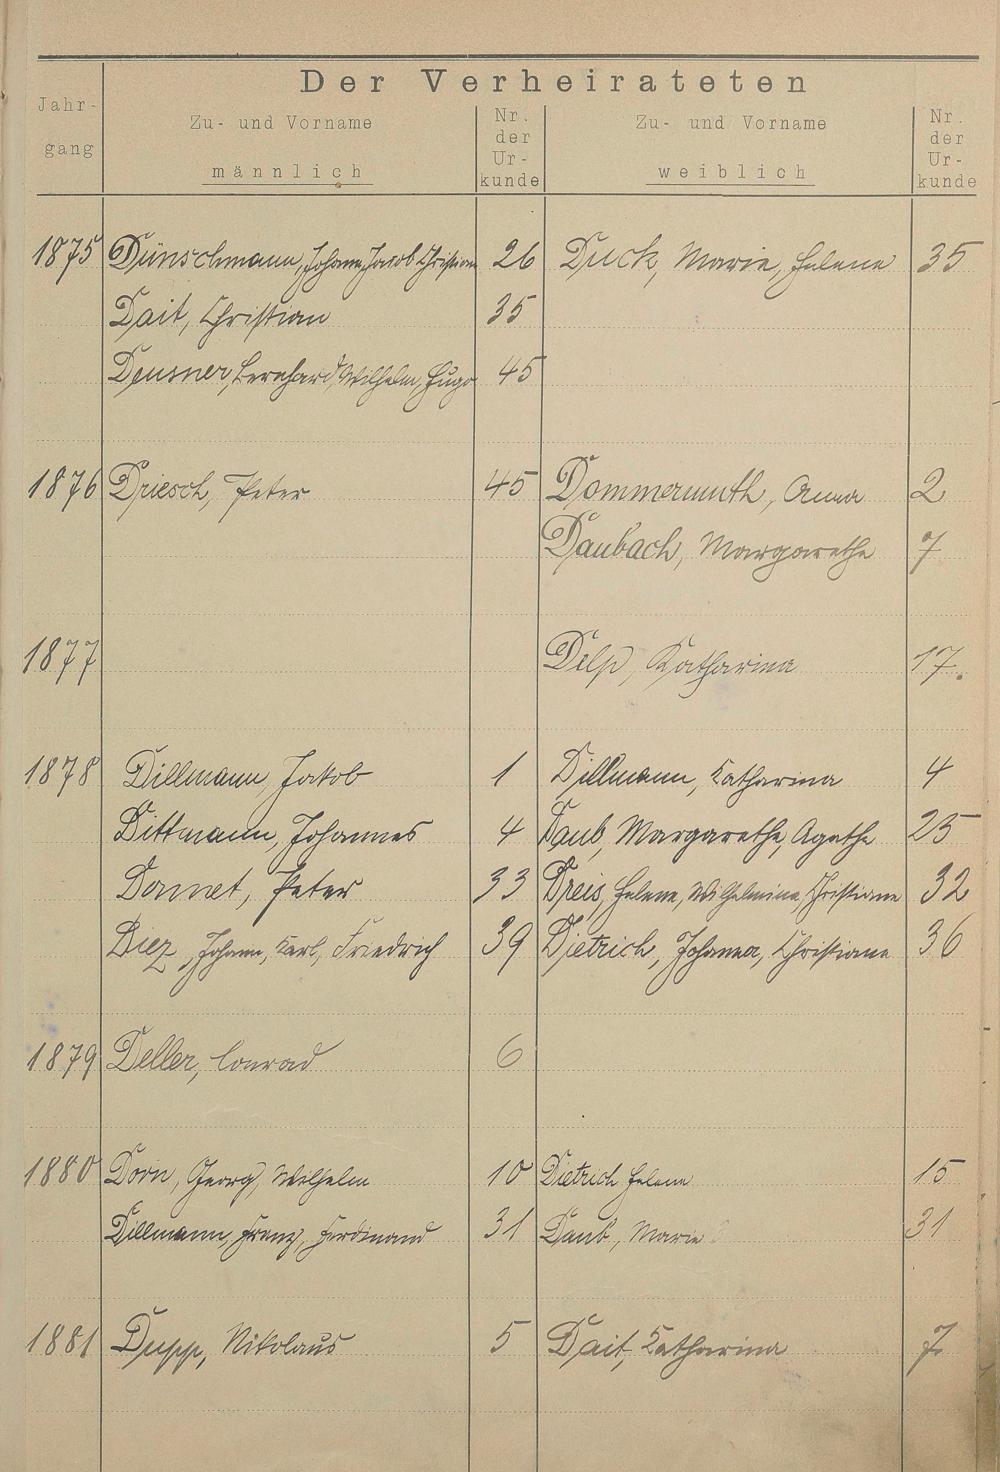 Der Verheirateten
Jahr-
gang
Zu- und Vorname
männlich
Nr.
der
Ur-
kunde
Zu- und Vorname
weiblich
Nr.
der
Ur-
kunde
1875 Dünschmann, Johann, Jacob Christian 26 Duck, Marie, Helene 35
Dait, Christian 35
Deusner, Bernhard, Wilhelm, Hugo 45
1876 Driesch, Peter 45 Dommermuth, Anna 2
Daubach, Margarethe 7
1877 Delp, Katharina 17.
1878 Dillmann, Jakob 1 Dillmann, Katharina 4
Dittmann, Johannes 4 Daub, Margarethe, Agathe 25
Donnet, Peter 33 Dreis, Helene, Wilhelmine, Christiane 32
Diez, Johann, Karl, Friedrich 39 Dietrich, Johanna, Christiane 36
1879 Deller, Conrad 6
1880 Dorn, Georg, Wilhelm 10 Dietrich Helene 15
Dillmann, Franz, Ferdinand 31 Daub, Marie 31
1881 Dupp, Nikolaus 5 Dait, Katharina 7